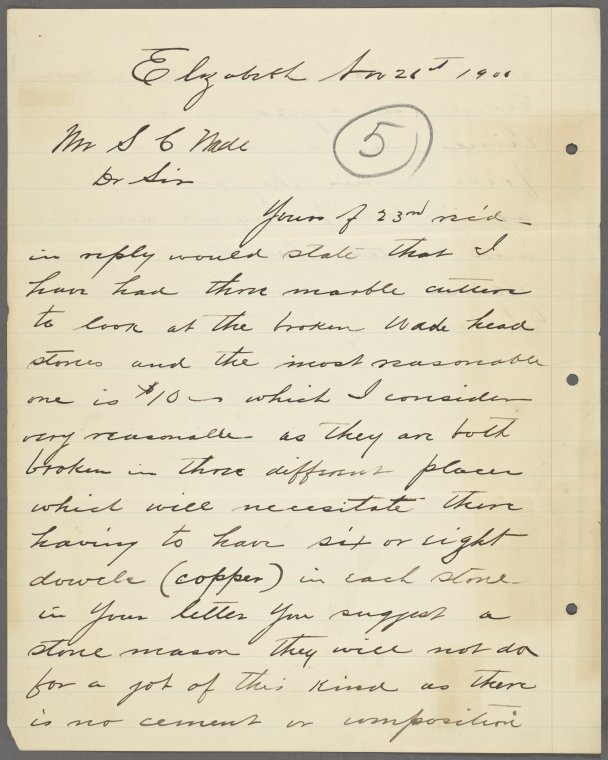 Elizabeth Nov 26st 1900
5
Mr S C Wade
Dr Sir
Yours of 23rd rec'd
in reply would state that I
have had three marble cutters
to look at the broken Wade head
stones and the most reasonable
one is $10— which I consider
very reasonable as they are both
broken in three different places
which will necesitate there
having to have six or eight
dowels (copper) in each stone
in your letter you suggest a
stone mason they will not do
for a job of this kind as there
is no cement or composition